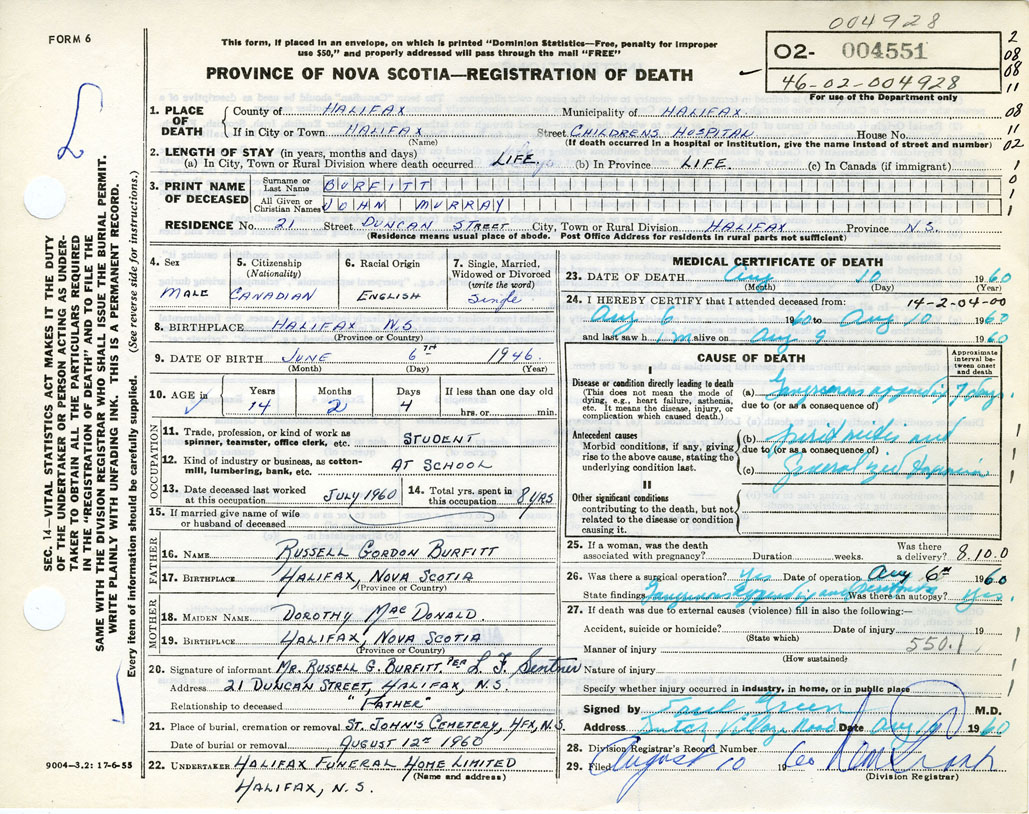 004928
FORM 6
This form, if placed in an envelope, on which is printed "Dominion Statistics—Free, penalty for improper
use $50," and properly addressed will pass through the mail "FREE"
PROVINCE OF NOVA SCOTIA—REGISTRATION OF DEATH
02- 004551
46-02-004928
For use of the Department only
2
08
08
11
08
11
02
1. PLACE OF DEATH
County of HALIFAX Municipality of HALIFAX
If in City or Town HALIFAX Street CHILDRENS HOSPITAL House No.
(Name) (If death occurred in a hospital or institution, give the name instead of street and number)
2. LENGTH OF STAY (in years, months and days)
(a) In City, Town or Rural Division where death occurred LIFE (b) In Province LIFE. (c) In Canada (if immigrant)
3. PRINT NAME OF DECEASED
Surname or Last Name BURFITT
All Given or Christian Names JOHN MURRAY
RESIDENCE No. 21 Street DUNCAN STREET City, Town or Rural Division HALIFAX Province N.S.
(Residence means usual place of abode. Post Office Address for residents in rural parts not sufficient)
4. Sex
MALE
5. Citizenship
(Nationality)
CANADIAN
6. Racial Origin
ENGLISH
7. Single, Married,
Widowed or Divorced
(write the word)
Single
8. BIRTHPLACE HALIFAX N.S.
(Province or Country)
9. DATE OF BIRTH JUNE 6TH 1946.
(Month) (Day) (Year)
10. AGE in
Years Months Days If less than one day old
14 2 4 hrs. or min.
OCCUPATION
11. Trade, profession, or kind of work as
spinner, teamster, office clerk, etc. STUDENT
12. Kind of industry or business, as cotton-
mill, lumbering, bank, etc. AT SCHOOL
13. Date deceased last worked
at this occupation JULY 1960
14. Total yrs. spent in
this occupation 8 YRS
15. If married give name of wife
or husband of deceased
FATHER
16. NAME RUSSELL GORDON BURFITT
17. BIRTHPLACE HALIFAX, NOVA SCOTIA
(Province or Country)
MOTHER
18. MAIDEN NAME DOROTHY MAC DONALD
19. BIRTHPLACE HALIFAX, NOVA SCOTIA
(Province or Country)
20. Signature of informant MR. RUSSELL G. BURFITT. PER L. F.
Address 21 DUNCAN STREET, HALIFAX, N.S.
Relationship to deceased "FATHER"
21. Place of burial, cremation or removal ST. JOHN'S CEMETERY, HFX, N.S.
Date of burial or removal AUGUST 12th 1960
22. UNDERTAKER HALIFAX FUNERAL HOME LIMITED
(Name and address)
HALIFAX, N.S.
MEDICAL CERTIFICATE OF DEATH
23. DATE OF DEATH Aug 10 1960
(Month) (Day) (Year)
24. I HEREBY CERTIFY that I attended deceased from: 14-2-04-00
Aug 6 1960 to Aug 10 1960
and last saw h im alive on Aug 9 1960
CAUSE OF DEATH
Approximate interval between onset and death
I
Disease or condition directly leading to death
(This does not mean the mode of
dying, e.g., heart failure, asthenia,
etc. It means the disease, injury, or
complication which caused death.)
(a) Gangrenous appendix 7 days
due to (or as a consequence of)
Antecedent causes
Morbid conditions, if any, giving
rise to the above cause, stating the
underlying condition last.
(b) and
due to (or as a consequence of)
(c) Generalized
II
Other significant conditions
contributing to the death, but not
related to the disease or condition
causing it.
25. If a woman, was the death
associated with pregnancy? Duration weeks. Was there
a delivery? 8.10.0
26. Was there a surgical operation? yes Date of operation Aug 6th 1960
State findings Gangrenous Appendix and Was there an autopsy? yes.
27. If death was due to external causes (violence) fill in also the following:—
Accident, suicide or homicide? Date of injury 19
(State which)
Manner of injury 550.1
(How sustained)
Nature of injury
Specify whether injury occurred in industry, in home, or in public place
Signed by Green M.D.
Address Dutch Village Road Date Aug 10 1960
28. Division Registrar's Record Number
29. Filed August 10 1960
(Division Registrar)
SEC. 14—VITAL STATISTICS ACT MAKES IT THE DUTY
OF THE UNDERTAKER OR PERSON ACTING AS UNDER-
TAKER TO OBTAIN ALL THE PARTICULARS REQUIRED
IN THE "REGISTRATION OF DEATH" AND TO FILE THE
SAME WITH THE DIVISION REGISTRAR WHO SHALL ISSUE THE BURIAL PERMIT.
WRITE PLAINLY WITH UNFADING INK. THIS IS A PERMANENT RECORD.
Every item of information should be carefully supplied. (See reverse side for instructions.)
9004—3.2: 17-6-55